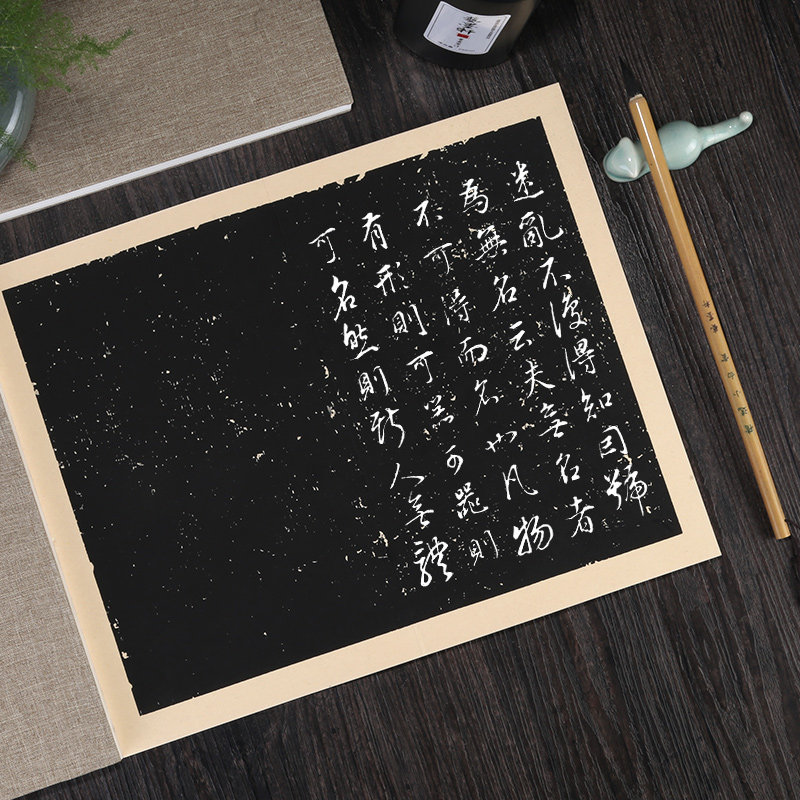 迷亂不復得知因號
為無名云夫無名者
不可得而名也凡物
有形則可器可器則
可名然則斯人無體